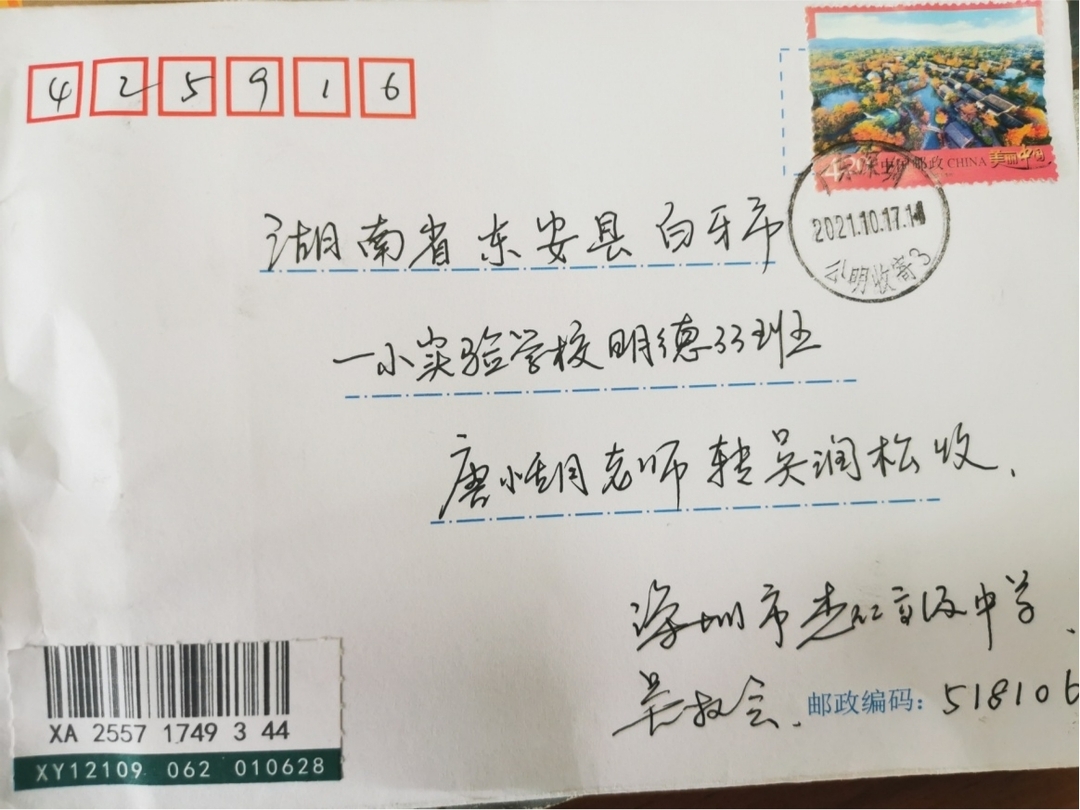 425916
4.20元 中国邮政 CHINA 美丽中国
2021.10.17.1
明收寄3
湖南省东安县白牙市
一小实验学校明德33班
唐 老师转吴润松收.
深圳市 高级中学.
吴 会.
邮政编码：518106
XA 2557 1749 3 44
XY12109 062 010628